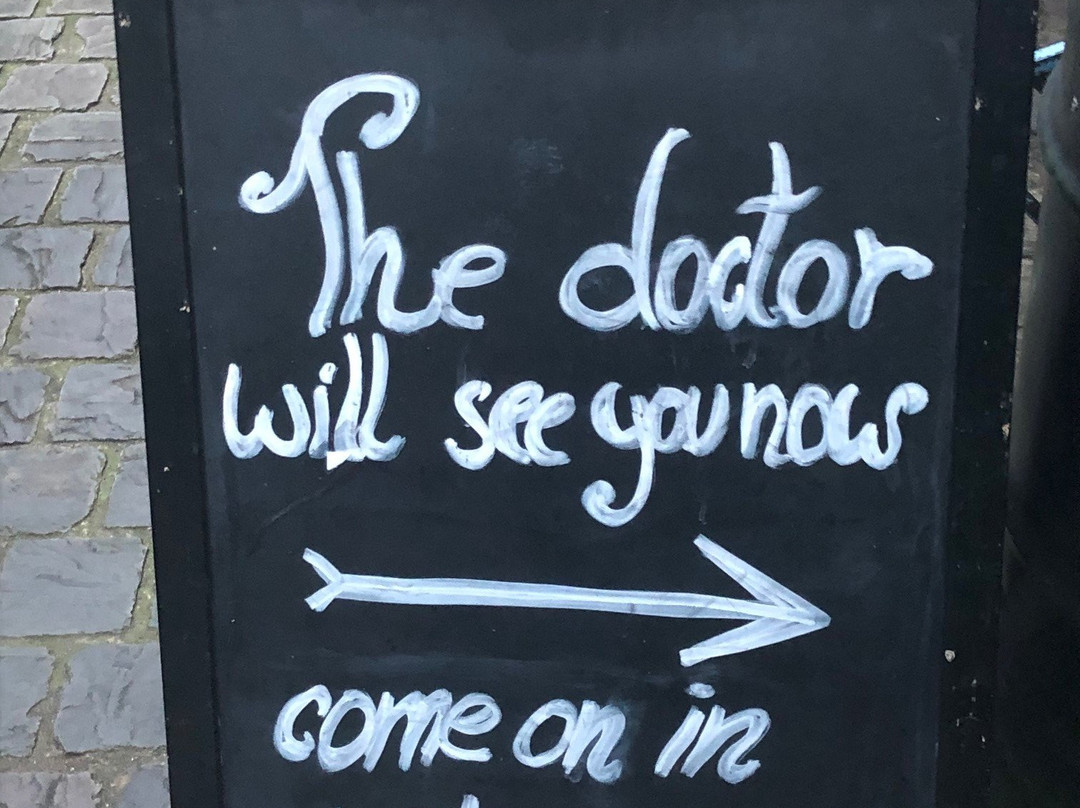 The doctor
will see you now
come on in